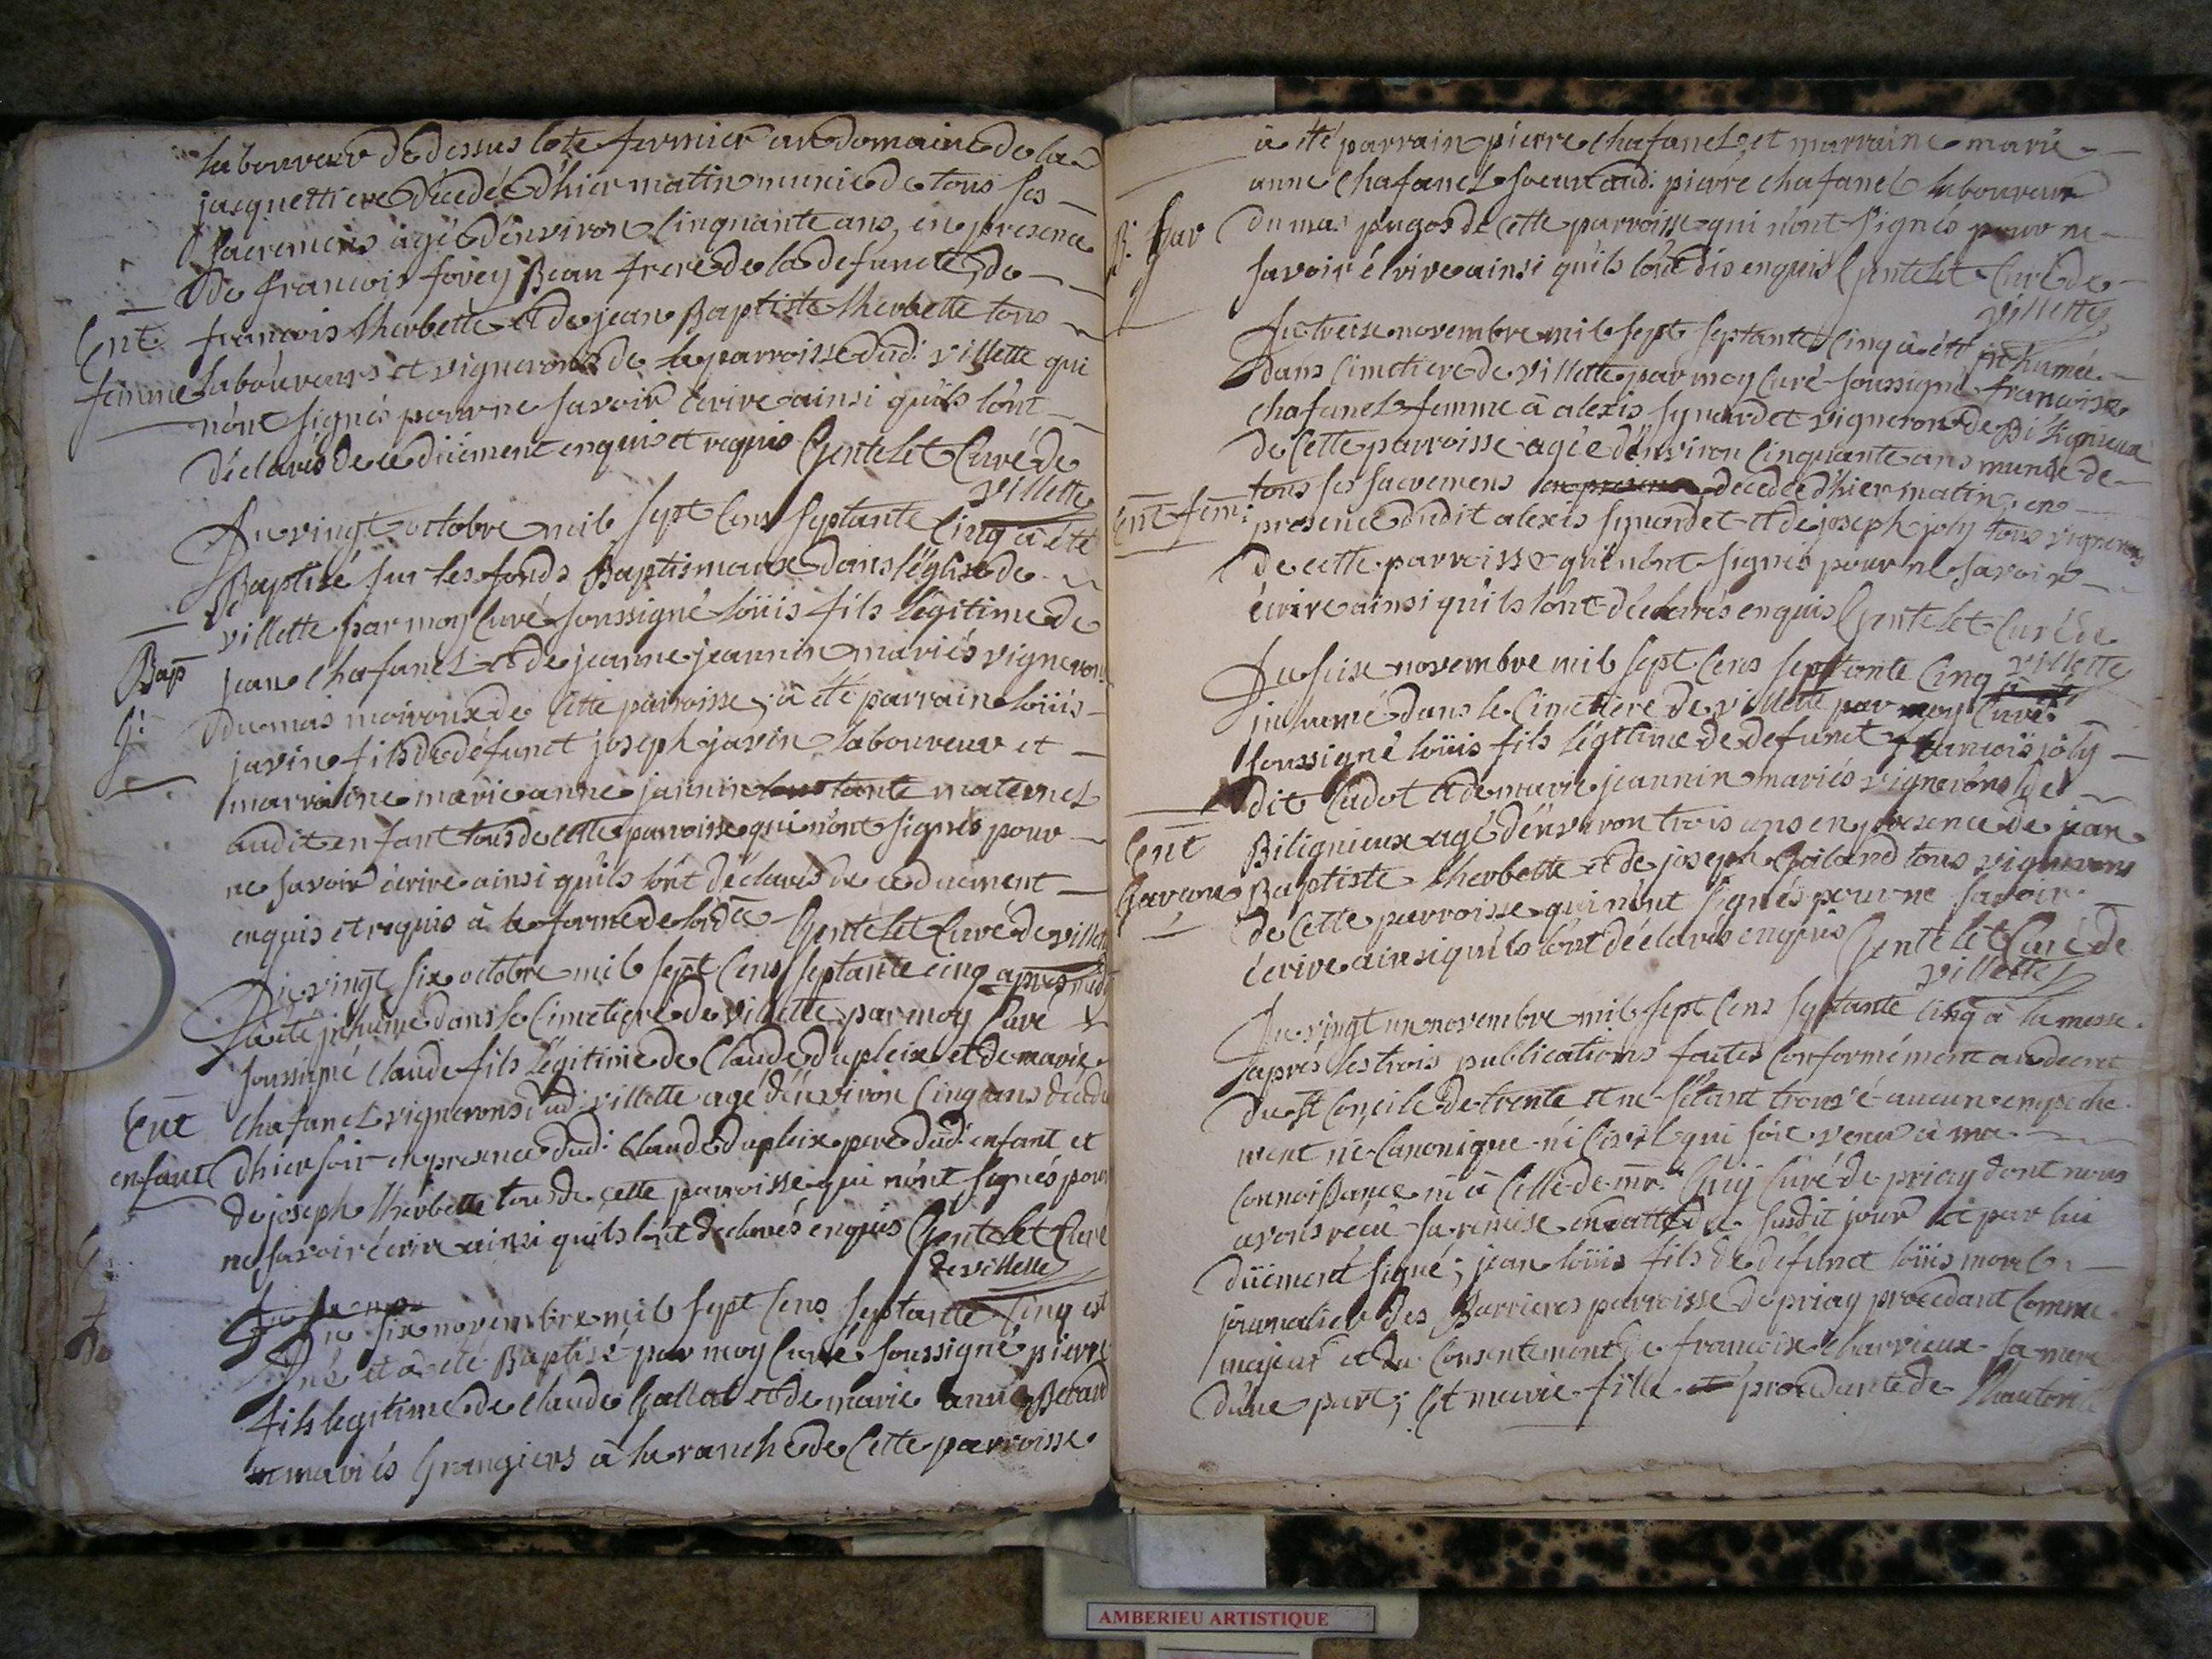 laboureur de dessus lote fermier au domaine de la
jacquettiere décedée d'hier matin munie de tous ses
sacremens agée d'énviron Cinquante ans, en presence
de francois fovey Beau frere de la defuncte, de
Ent. francois therbette et de jean Baptiste therbette tous
femme laboureurs et vignerons de la parroisse dud: villette qui
n'ont signés pour ne savoir écrire ainsi qu'ils l'ont
déclarés de ce düement enquis et requis Gentelet Curé de
villette
Du vingt octobre mil sept Cens septante Cinq à été
Baptisé sur les fonds Baptismaux dans l'église de
villette par moy Curé soussigné loüis fils légitime de
Bap jean Chafanel et de jeanne jeannin mariés vignerons
G: du mas moiroux de Cette parroisse, à été parrain loüis
javin fils de défunct joseph javin laboureur et
marraine marie anne jannin tante maternel
audit enfant tous de cette parroisse qui n'ont signés pour
ne savoir écrire ainsi qu'ils l'ont déclarés de ce duement
enquis et requis à la forme de l'ord.ce Gentelet Curé de villette
Du vingt six octobre mil sept Cens septante cinq apres midy
à été jnhumé dans le Cimetiere de villette par moy Curé
soussigné Claude fils légitime de Claude dupleix et de marie
Ent Chafanel vignerons dud: villette agé d'énviron Cinq ans décedé
enfant d'hier soir en presence dud: Claude dupleix pere dud: enfant et
de joseph therbette tous de cette parroisse qui n'ont signés pour
ne savoir écrire ainsi qu'ils l'ont declarés enquis Gentelet Curé
de villette
Du six novembre mil sept Cens septante Cinq est
né et à été Baptisé par moy Curé soussigné pierre
fils legitime de Claude Gallat et de marie anne Berard
mariés Grangiers à la ranche de Cette parroisse
à été parrain pierre Chafanel, et marraine marie
anne Chafanel soeur aud: pierre chafanel laboureur
B: Gar du mas pugos de Cette parroisse qui n'ont signés pour ne
savoir écrire ainsi qu'ils l'ont dis enquis Gentelet Curé de
villette
Du treise novembre mil sept septante Cinq à été jnhumée
dans Cimetiere de villette par moy Curé soussigné francoise
Chafanel femme à alexis synardet vigneron de Bilignieux
de Cette parroisse agée d'énviron Cinquante ans munie de
Ent fem: tous ses sacremens en presence decedée d'hier matin, en
presence dudit alexis synardet et de joseph joly tous vignerons
de cette parroisse qui n'ont signés pour ne savoir
écrire ainsi qu'ils l'ont déclarés enquis Gentelet Curé de
villette
Du seise novembre mil sept Cens septante Cinq à été
jnhumé dans le Cimetiere de villette par moy Curé
soussigné loüis fils légitime de defunct francois joly
dit Cadet et de marie jeannin mariés vignerons de
Ent Bilignieux agé d'énviron trois ans en presence de jean
Garcon Baptiste therbette et de joseph Goiland tous vignerons
de Cette parroisse qui n'ont signés pour ne savoir
écrire ainsi qu'ils l'ont déclarés enquis Gentelet Curé de
villette
Du vingt un novembre mil sept Cens septante Cinq à la messe
après les trois publications faites Conformément au decret
du st Concile de trente et ne s'étant trouvé aucun empeche
ment ni Canonique ni Civil qui soit venu à ma
Connoissance ni à Celle de mr. Curé de priay dont nous
avons recû sa remise en datte du susdit jour et par lui
düement signé; jean loüis fils de defunct loüis morel
journalier des Barrieres parroisse de priay procedant Comme
majeur et du Consentement de francoise Charvieux sa mere
d'une part; Et marie fille et procedante de l'hautorité
AMBERIEU ARTISTIQUE